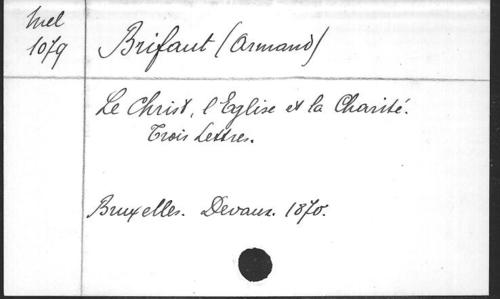 Mel
1079
Brifaut (Armand)
Le Christ, l'Eglise et la Charité.
Trois Lettres.
Bruxelles. Devaux. 1870.